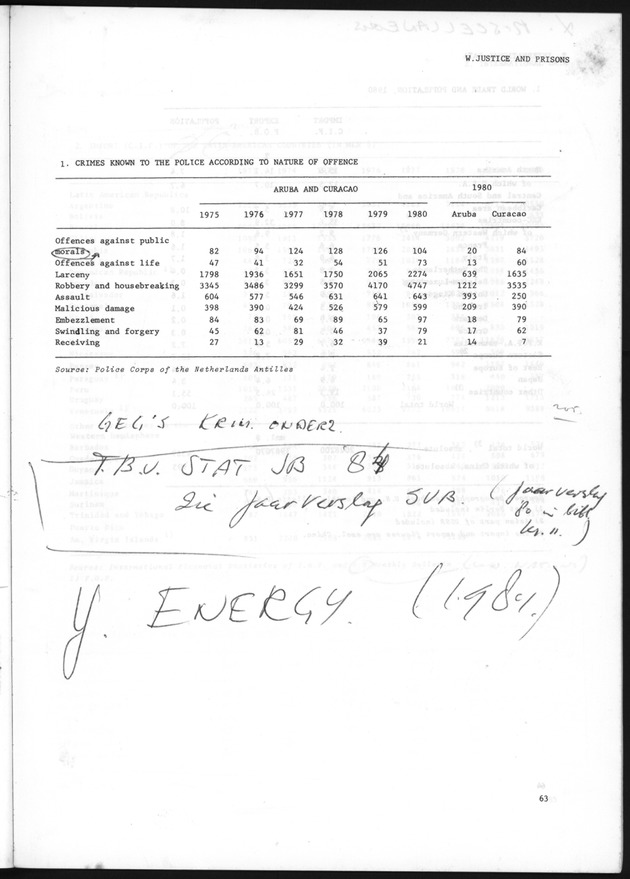 W.JUSTICE AND PRISONS
1. CRIMES KNOWN TO THE POLICE ACCORDING TO NATURE OF OFFENCE
ARUBA AND CURACAO 1980
1975 1976 1977 1978 1979 1980 Aruba Curacao
Offences against public
morals 82 94 124 128 126 104 20 84
Offences against life 47 41 32 54 51 73 13 60
Larceny 1798 1936 1651 1750 2065 2274 639 1635
Robbery and housebreaking 3345 3486 3299 3570 4170 4747 1212 3535
Assault 604 577 546 631 641 643 393 250
Malicious damage 398 390 424 526 579 599 209 390
Embezzlement 84 83 69 89 65 97 18 79
Swindling and forgery 45 62 81 46 37 79 17 62
Receiving 27 13 29 32 39 21 14 7
Source: Police Corps of the Netherlands Antilles
GEG'S KRIM. ONDERZ.
T.B.V. STAT JB 8
Zie Jaarverslag SVB. (Jaarverslag
80 in bibl
)
Y. ENERGY. (1984)
63